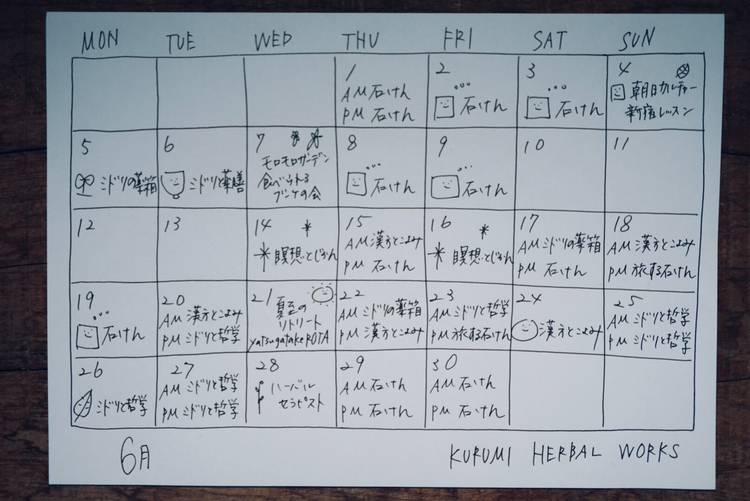 MON TUE WED THU FRI SAT SUN
1
AM 石けん
PM 石けん
2
石けん
3
石けん
4
朝日カルチャー
新宿レッスン
5
ミドリの薬箱
6
ミドリと薬膳
7
モロモロガーデン
食べられる
ブーケの会
8
石けん
9
石けん
10
11
12
13
14
瞑想とじかん
15
AM 漢方とこよみ
PM 石けん
16
瞑想とじかん
17
AM ミドリの薬箱
PM 石けん
18
AM 漢方とこよみ
PM 旅する石けん
19
石けん
20
AM 漢方とこよみ
PM ミドリと哲学
21
夏至の
リトリート
yatsugatake ROTA
22
AM ミドリの薬箱
PM 漢方とこよみ
23
AM ミドリと哲学
PM 旅する石けん
24
漢方とこよみ
25
AM ミドリと哲学
PM ミドリと哲学
26
ミドリと哲学
27
AM ミドリと哲学
PM ミドリと哲学
28
ハーバル
セラピスト
29
AM 石けん
PM 石けん
30
AM 石けん
PM 石けん
6月
KURUMI HERBAL WORKS